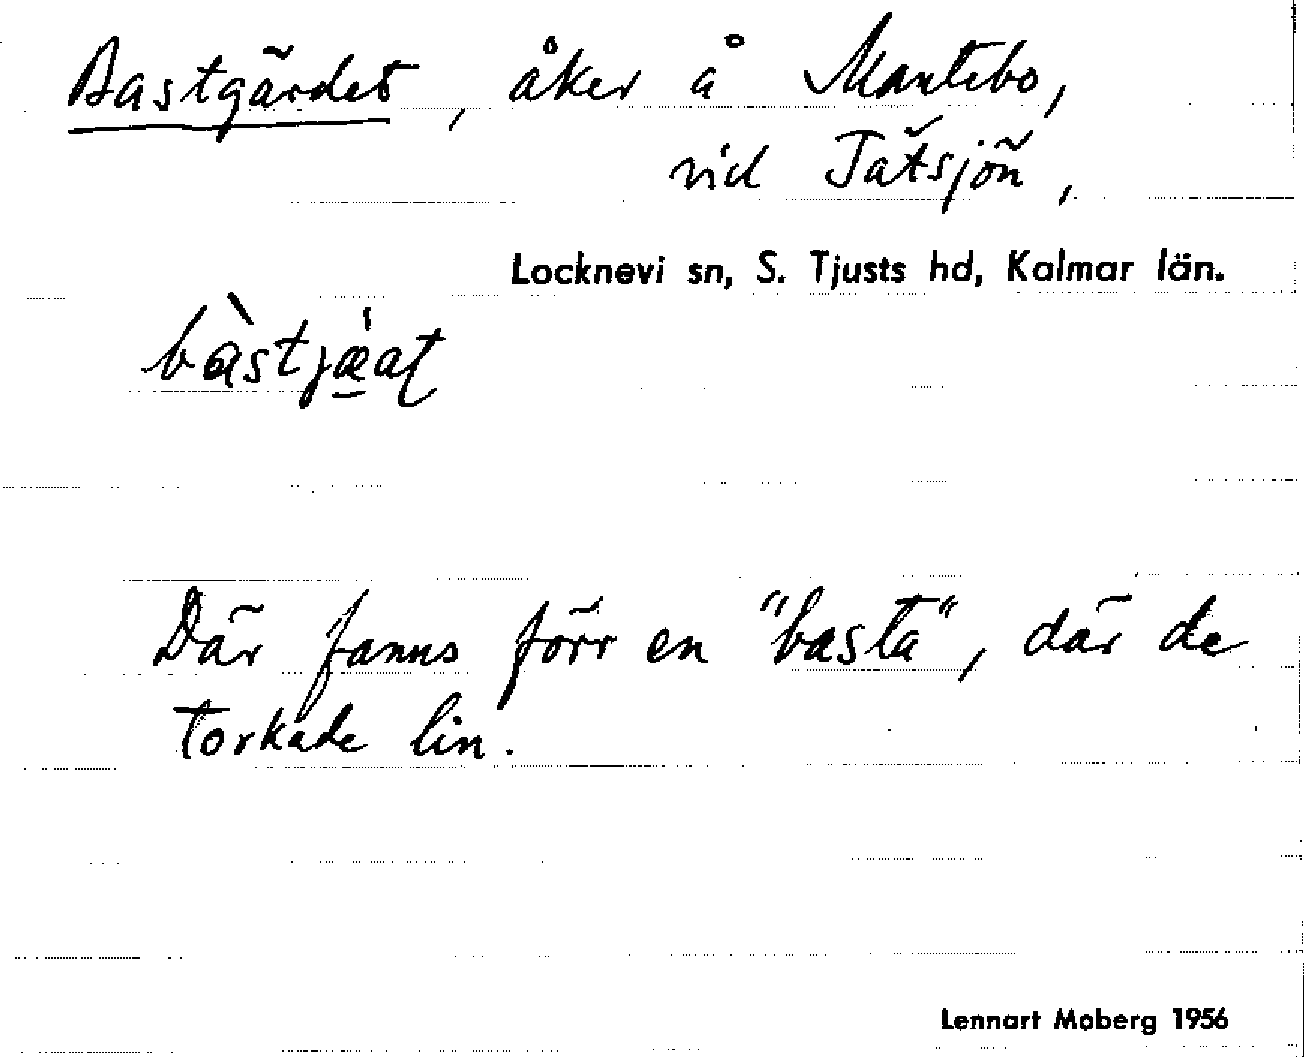 Bastgärdet, åker å Mantebo,
vid Tätsjön,
Locknevi sn, S. Tjusts hd, Kalmar län.
bàstjǽ̠at
Där fanns förr en "basta", där de
torkade lin.
Lennart Moberg 1956